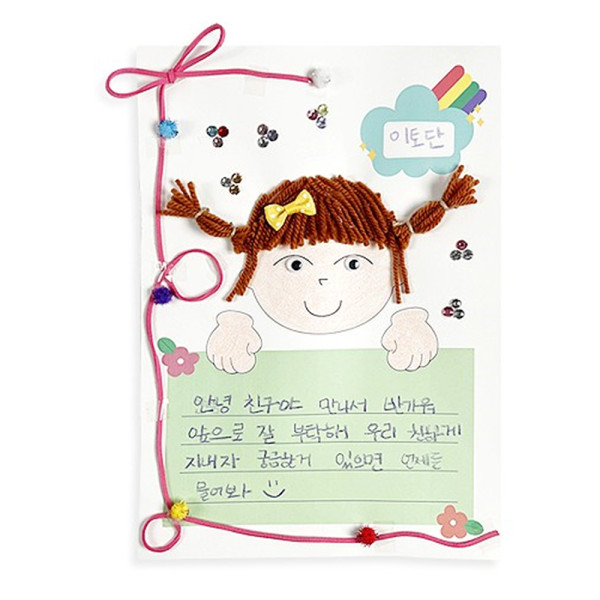 이토단
안녕 친구야 만나서 반가워
앞으로 잘 부탁해 우리 친하게
지내자 궁금한거 있으면 언제든
물어봐